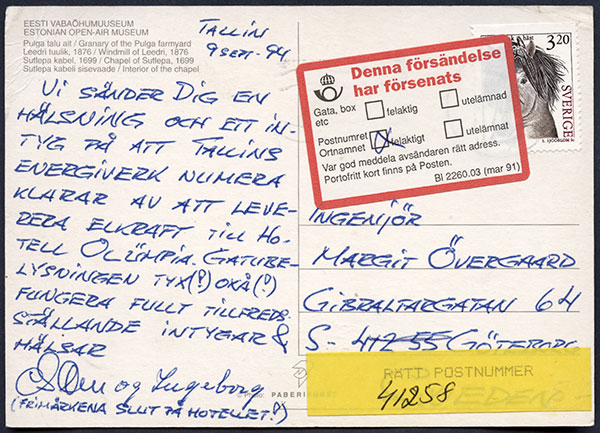 EESTI VABAÕHUMUUSEUM
ESTONIAN OPEN-AIR MUSEUM
Pulga talu ait / Granary of the Pulga farmyard
Leedri tuulik, 1876 / Windmill of Leedri, 1876
Sutlepa kabel, 1699 / Chapel of Sutlepa, 1699
Sutlepa kabeli sisevaade / Interior of the chapel
TALLIN
9 SEPT - 94
VI SÄNDER DIG EN
HÄLSNING OCH ETT IN-
TYG PÅ ATT TALLINS
ENERGIVERK NUMERA
KLARAR AV ATT LEVE-
RERA ELKRAFT TILL HO-
TELL OLÜMPIA. GATUBE-
LYSNINGEN TYX(?) OXÅ(?)
FUNGERA FULLT TILLFREDS-
STÄLLANDE INTYGAR &
HÄLSAR
og Ingeborg
(FRIMÄRKENA SLUT PÅ HOTELLET!)
Denna försändelse
har försenats
Gata, box
etc
felaktig
utelämnad
Postnumret
Ortnamnet
felaktigt
utelämnat
Var god meddela avsändaren rätt adress.
Portofritt kort finns på Posten.
Bl 2260.03 (mar 91)
häst
3.20
SVERIGE
INGENJÖR
MARGIT ÖVERGAARD
GIBRALTARGATAN 64
S- 41255 GÖTEBORG
RÄTT POSTNUMMER
41258